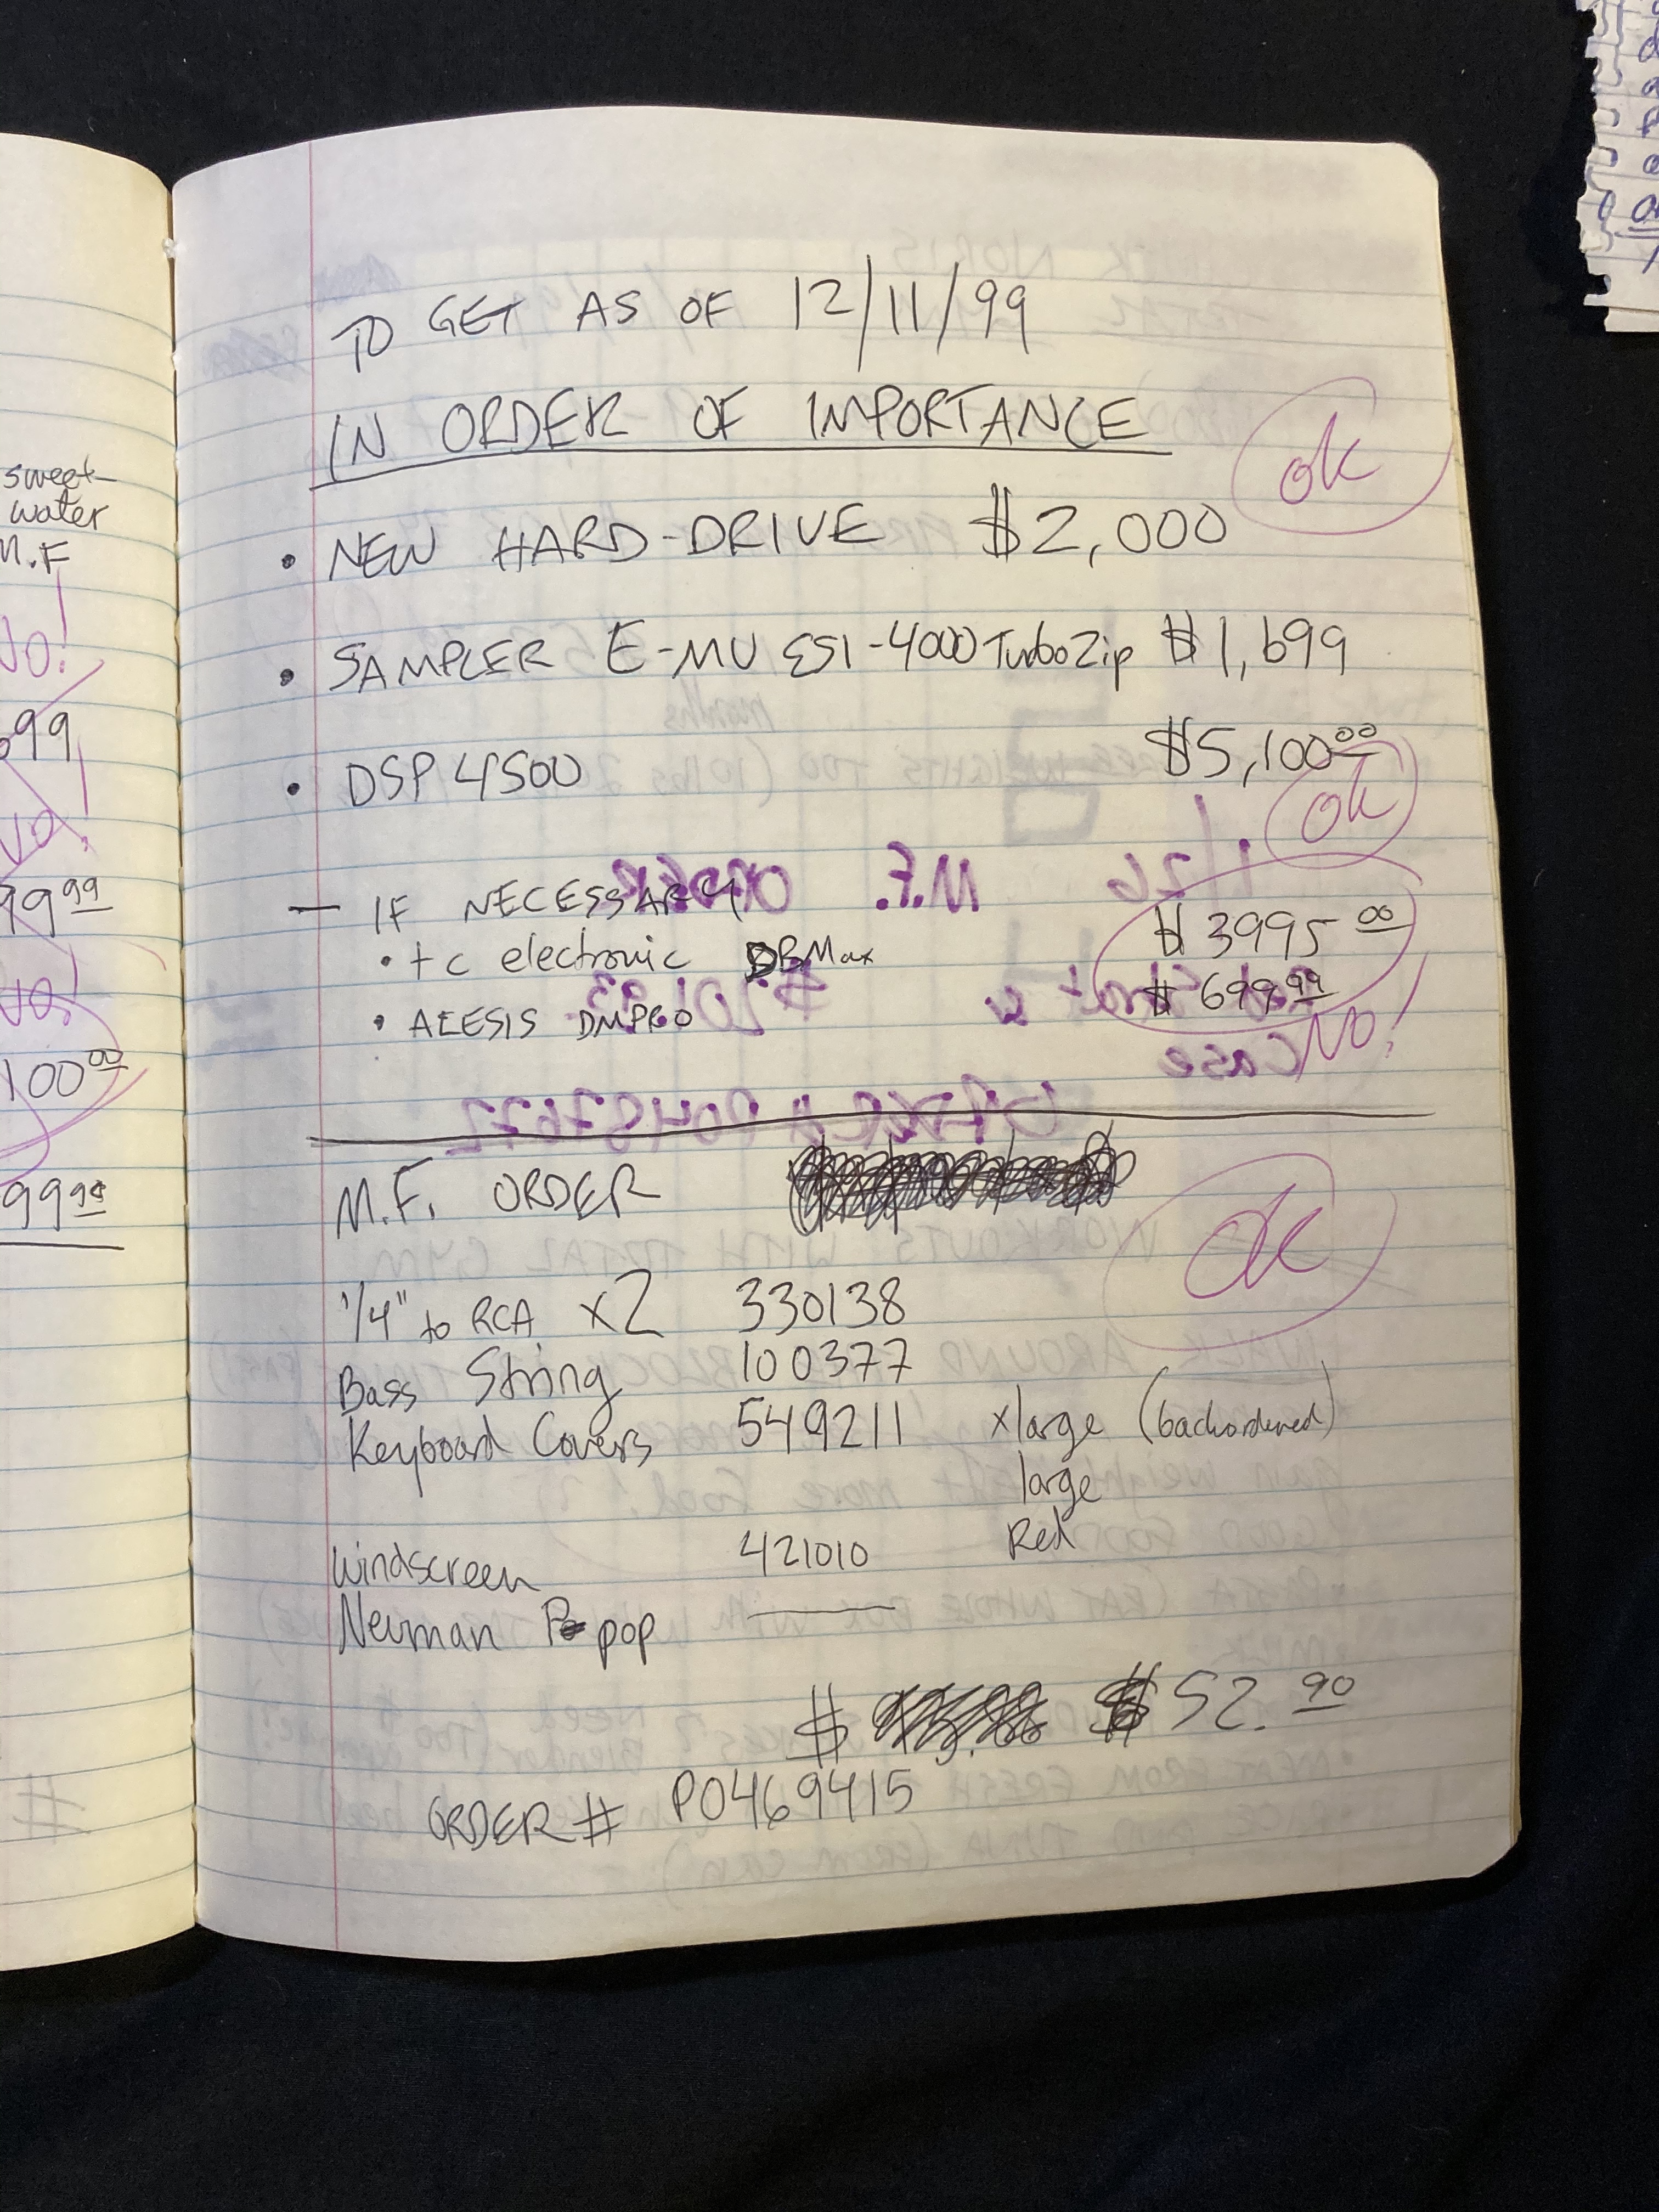 sweet-
water
M.F
No!
99
No!
99 99
No!
100 00
99 98
TO GET AS OF 12/11/99
IN ORDER OF IMPORTANCE
ok
• NEW HARD-DRIVE $2,000
• SAMPLER E-MU ESI-4000 TurboZip $1,699
• DSP 4500 $5,100 00
ok
— IF NECESSARY
• tc electronic DBMax $3995 00
• ALESIS DMPRO $699 99
NO!
M.F. ORDER
ok
1/4" to RCA x2 330138
Bass String 100377
Keyboard Covers 549211 xlarge (backordered)
large
Windscreen 421010 Red
Neuman pop
$ $52. 90
ORDER # P0469415
1/26 M.F. ORDER
Case
ORDER # P0487672
WORKOUTS WITH TOTAL GYM